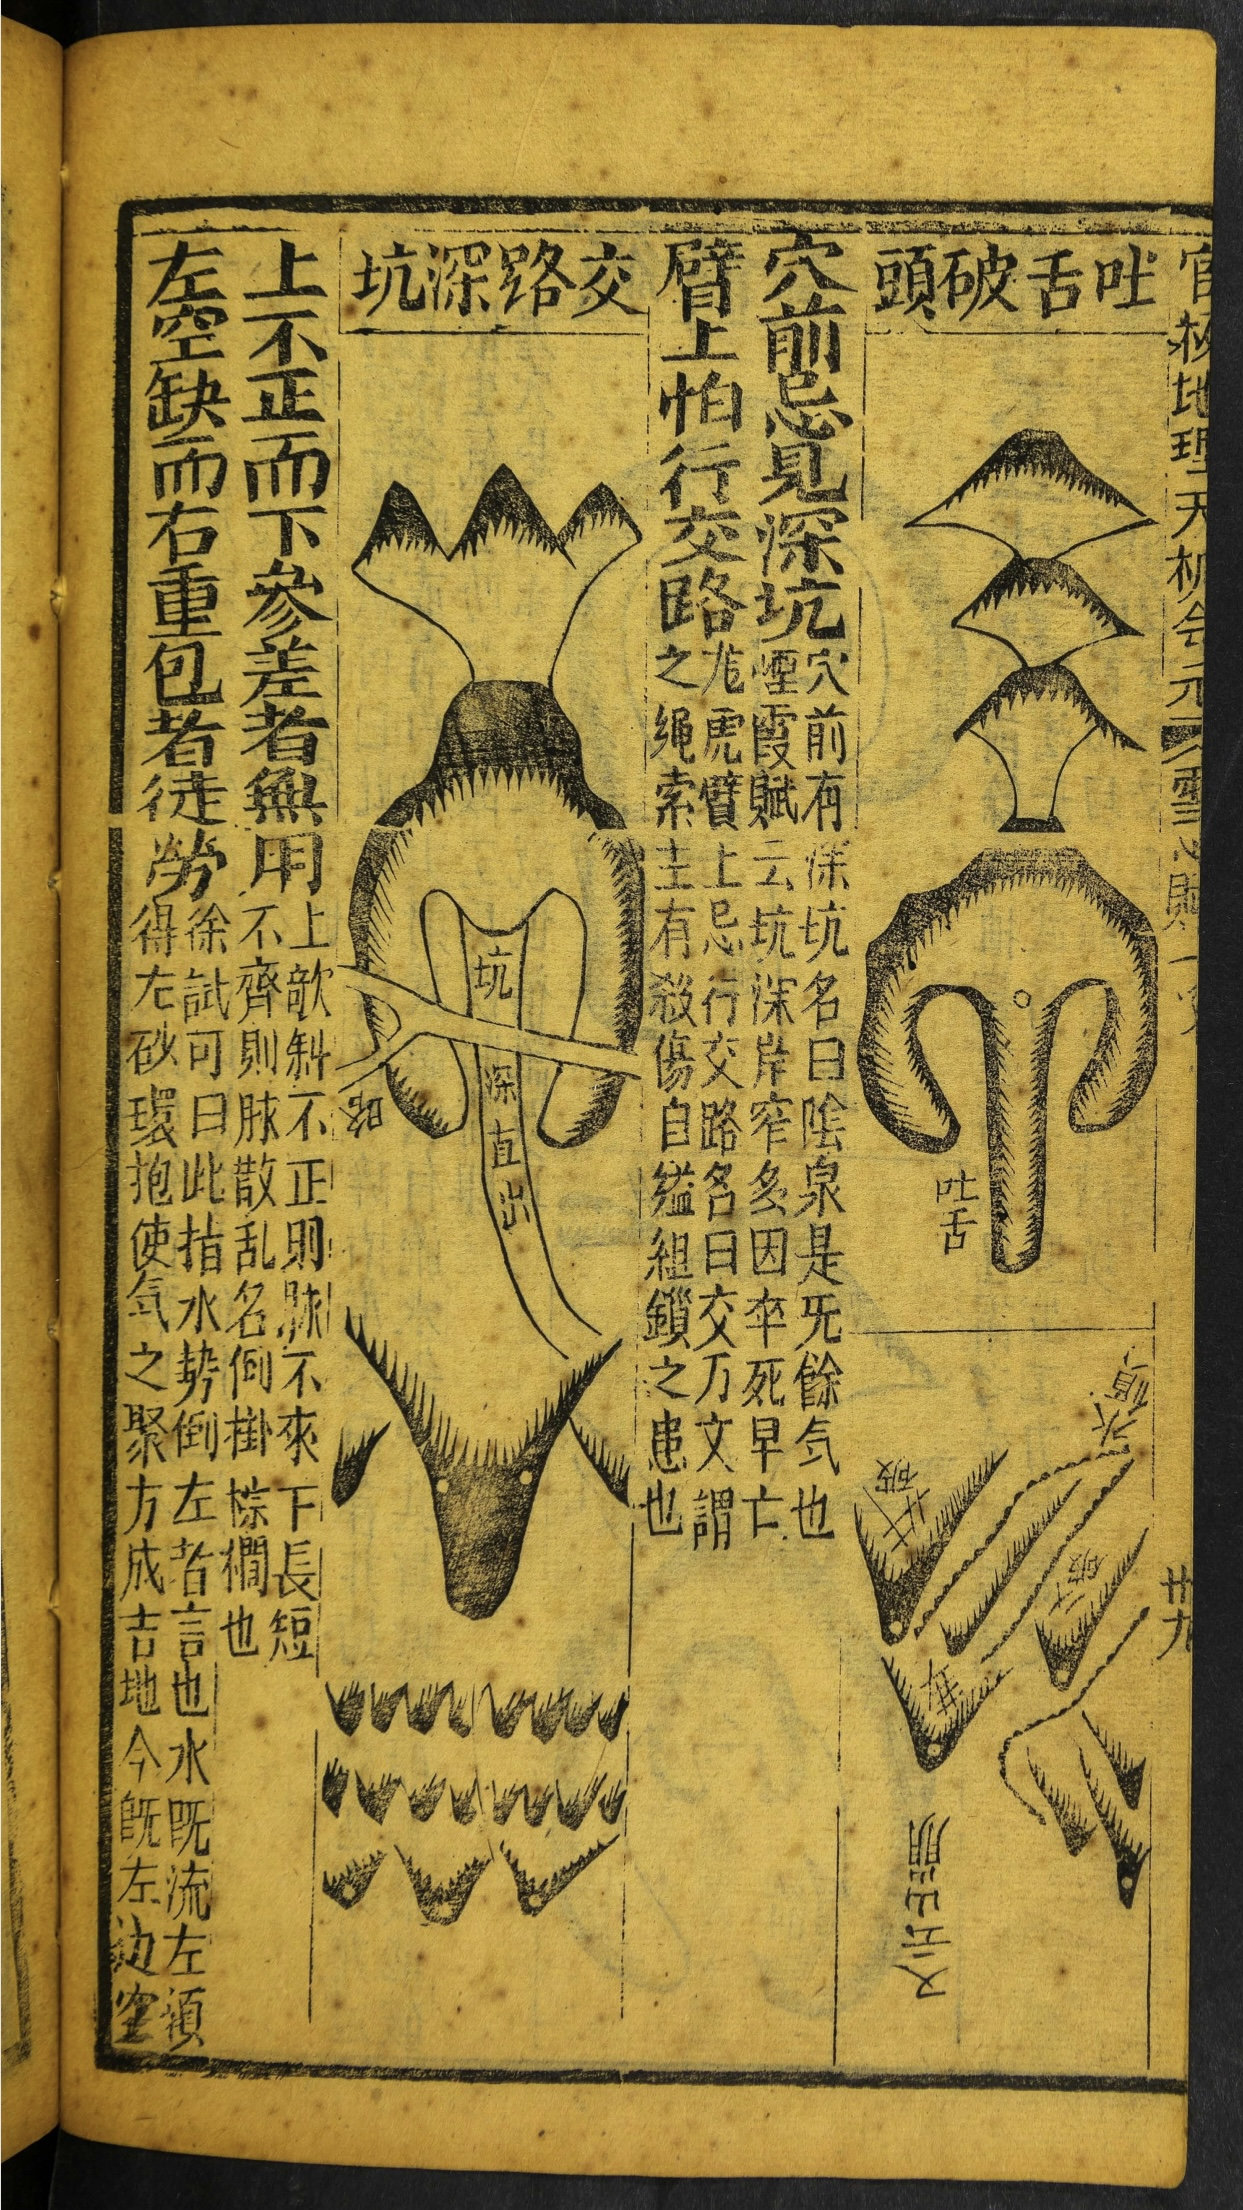 官板地理天机会元
雪心賦
卅九
吐舌破頭
吐舌
破
破
又云出朋
穴前忌見深坑
穴前有深坑名曰陰泉是旡餘气也
煙霞賦云坑深岸窄多因卒死早亡
臂上怕行交路
龙虎臂上忌行交路名曰交万文謂
之繩索主有殺傷自縊組鎖之患也
交路深坑
坑
深直出
路
上不正而下參差者無用
上欹斜不正則脉不來下長短
不齊則脉散乱名倒掛棕櫚也
左空缺而右重包者徒勞
徐試可曰此指水势倒左者言也水既流左須
得左砂環抱使气之聚方成吉地今既左边空